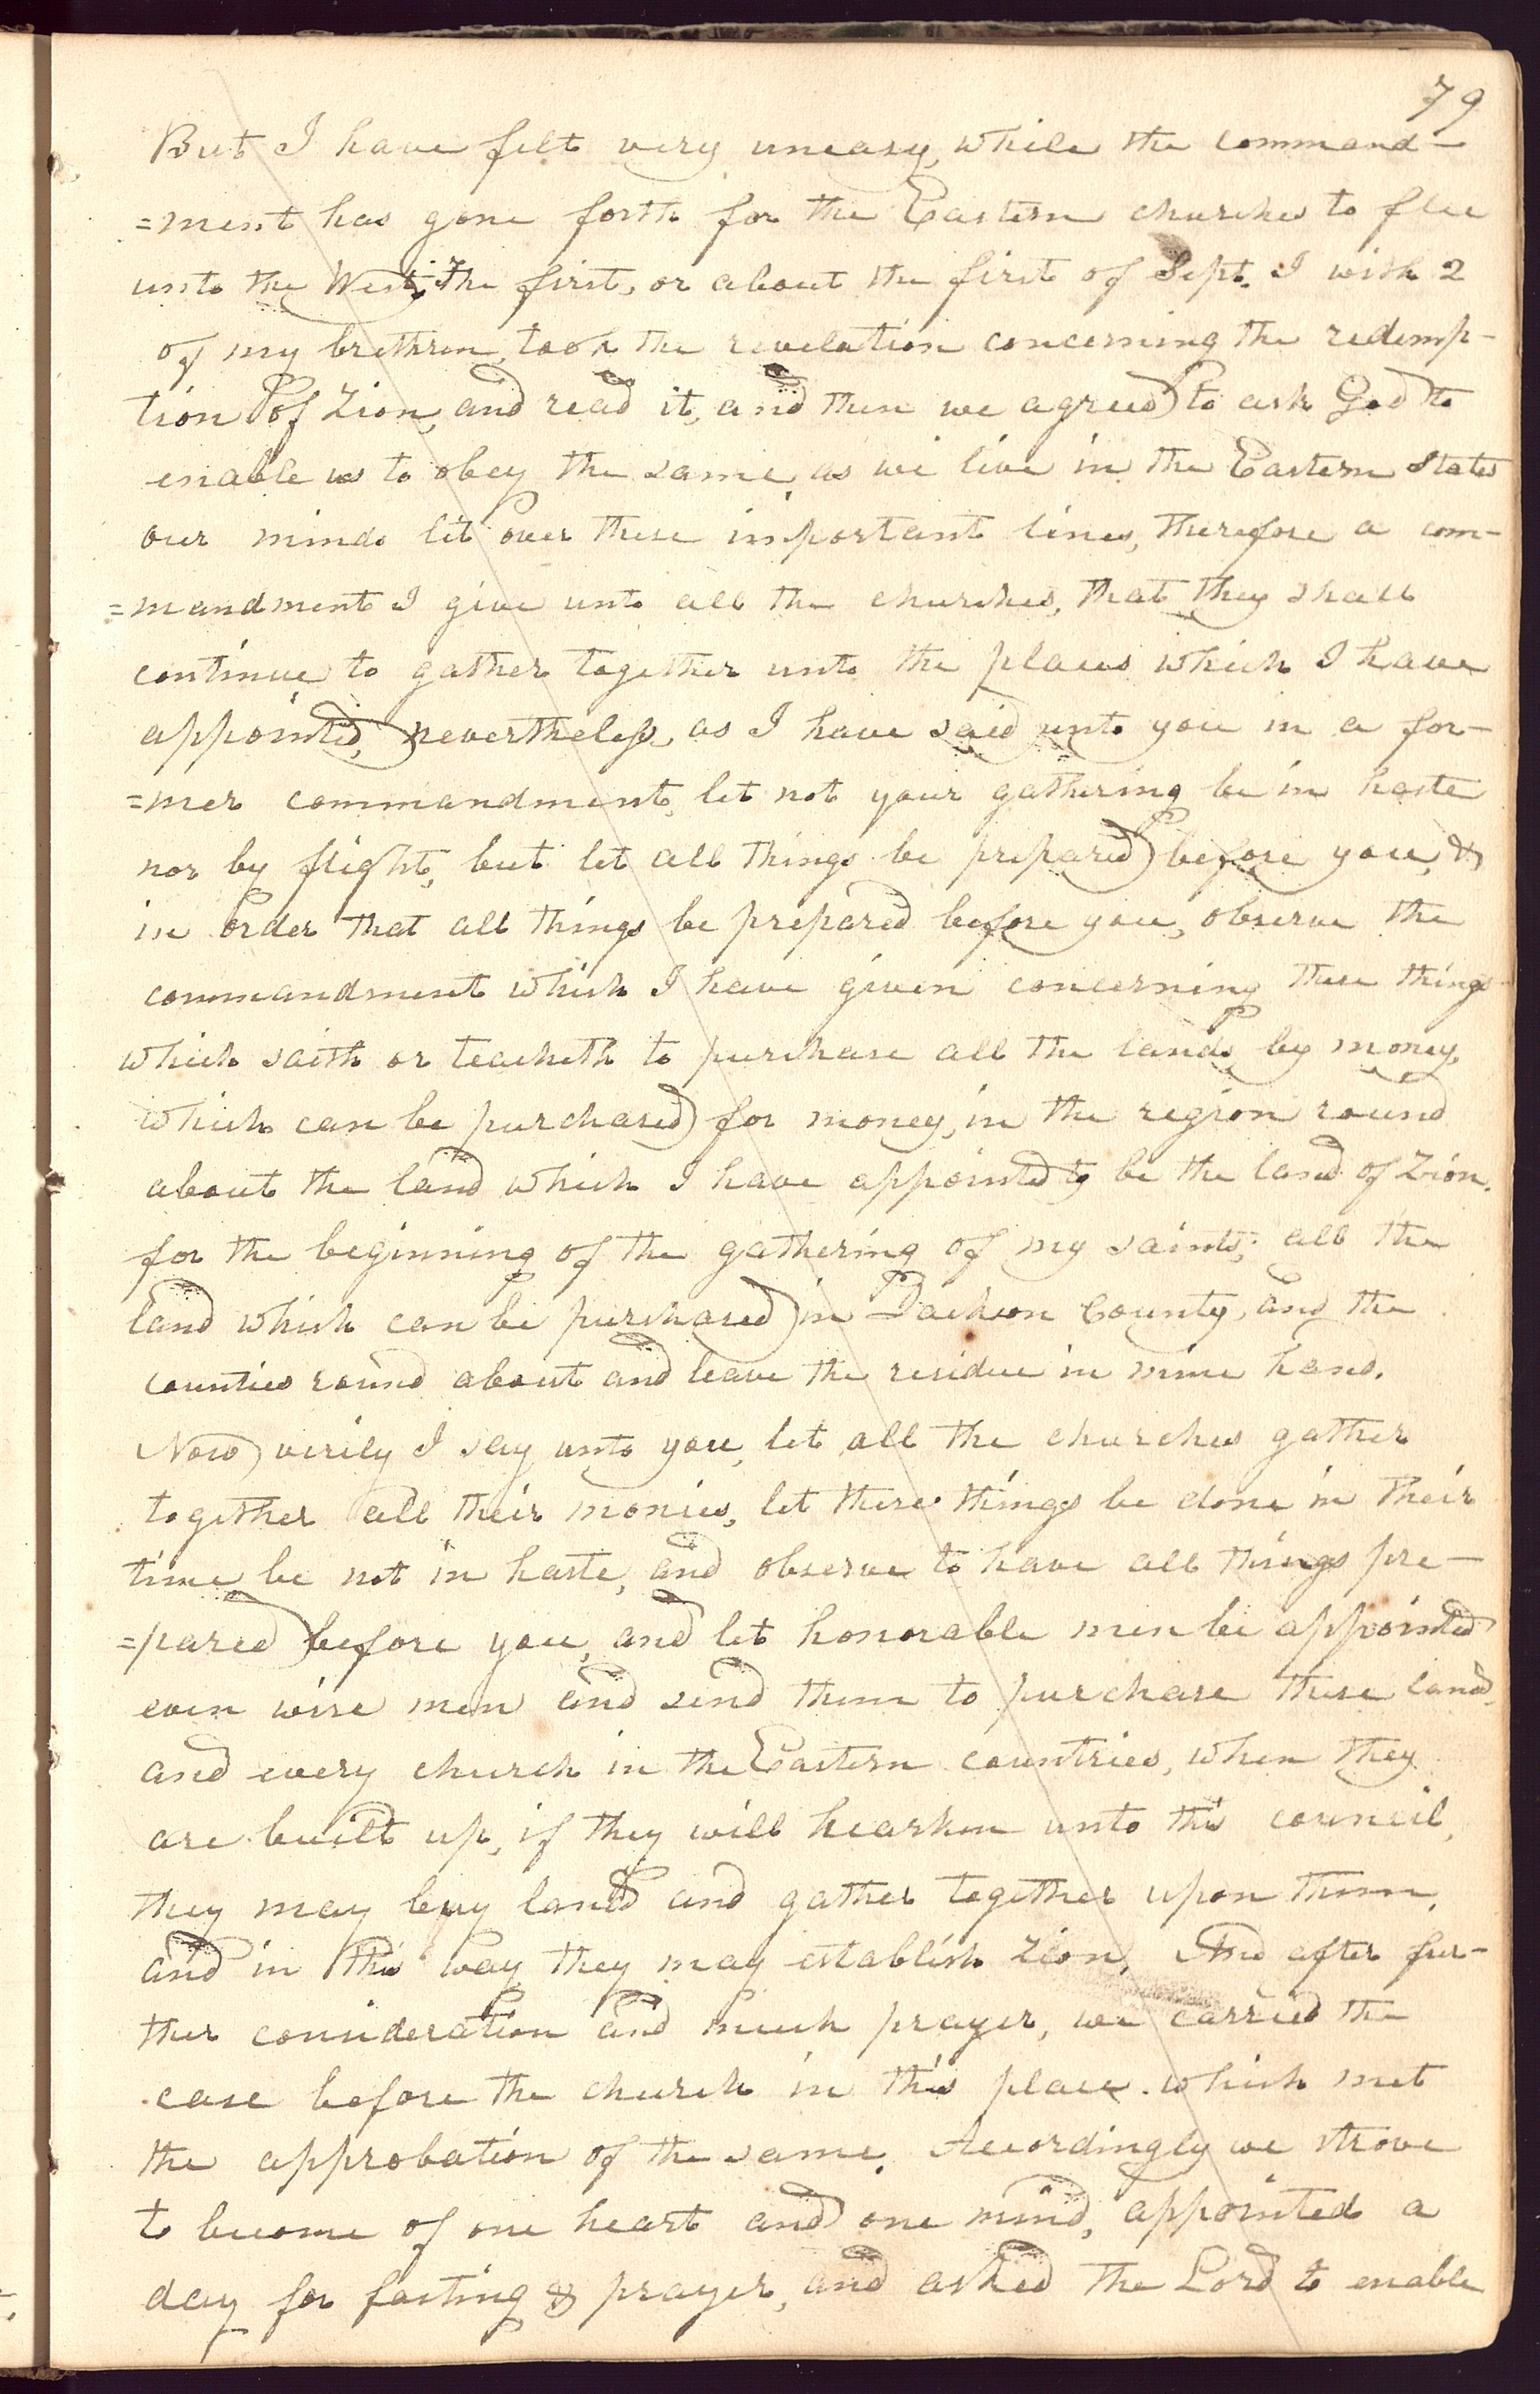 79
But I have felt very uneasy, while the command-
=ment has gone forth for the Eastern churches to flee
unto the West; The first, or about the first of Sept. I with 2
of my brethren, took the revelation concerning the redemp-
tion of Zion, and read it, and then we agreed to ask God to
enable us to obey the same, as we live in the Eastern States
our minds lit over these important lines, therefore a com-
=mandment I give unto all the churches, that they shall
continue to gather together unto the places which I have
appointed, nevertheless, as I have said unto you in a for-
=mer commandment, let not your gathering be in haste
nor by flight, but let all things be prepared before you, &
in order that all things be prepared before you, observe the
commandment which I have given concerning these things
which saith or teacheth to purchase all the lands, by money,
which can be purchased for money, in the region round
about the land which I have appointed to be the land of Zion.
for the beginning of the gathering of my saints; all the
land which can be purchased in Jackson County, and the
counties round about and leave the residue in mine hand.
Now verily I say unto you, let all the churches gather
together all their monies, let these things be done in their
time be not in haste, and observe to have all things pre-
=pared before you, and let honorable men be appointed
even wise men and send them to purchase these lands,
and every church in the Eastern countries, when they
are built up, if they will hearken unto this council,
they may buy lands and gather together upon them,
and in this way they may establish Zion. And after fur-
ther consideration and much prayer, we carried the
case before the church in this place. which met
the approbation of the same. Accordingly we strove
to become of one heart and one mind, appointed a
day for fasting & prayer, and asked the Lord to enable